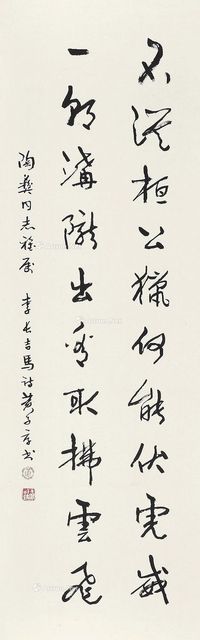 不從桓公獵何能伏虎威
一朝溝隴出看取拂雲飛
陶同志雅屬 李長吉馬詩黃子書